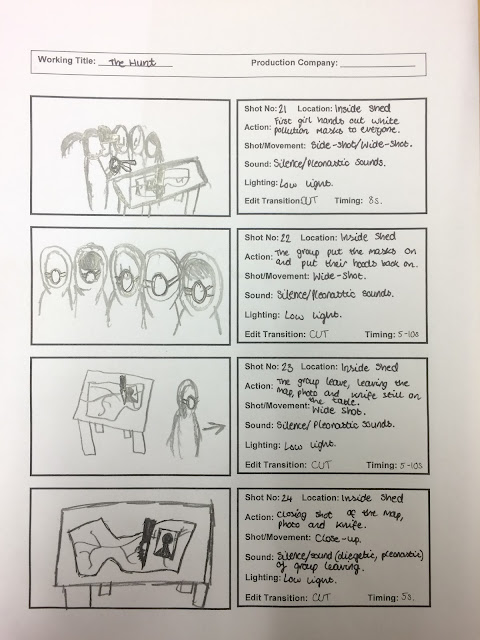 Working Title: The Hunt Production Company:
Shot No: 21 Location: Inside Shed
First girl hands out white
Action: pollution masks to everyone.
Shot/Movement: Side-shot/Wide-Shot.
Sound: Silence/Pleonastic Sounds.
Lighting: Low Light.
Edit Transition: CUT Timing: 8s.
Shot No: 22 Location: Inside Shed
Action: The group put the masks on
and put their hoods back on.
Shot/Movement: Wide-Shot.
Sound: Silence/Pleonastic sounds.
Lighting: Low Light.
Edit Transition: CUT Timing: 5-10s
Shot No: 23 Location: Inside Shed
Action: The group leave, leaving the
map, photo and knife still on
the table.
Shot/Movement: Wide Shot.
Sound: Silence/ Pleonastic Sounds.
Lighting: Low Light.
Edit Transition: CUT Timing: 5-10s
Shot No: 24 Location: Inside Shed
Action: Closing shot of the map,
photo and knife.
Shot/Movement: Close-up.
Sound: Silence/sound (diegetic, pleonastic)
of group leaving.
Lighting: Low Light.
Edit Transition: CUT Timing: 5s.